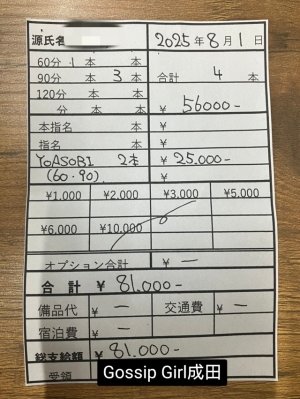 源氏名 2025年8月1日
60分 1 本 本
90分 本 3 本 合計 4 本
120分 本 本
分 本 本 ¥ 56000-
本指名 本 ¥
指名 本 ¥
YOASOBI 2本 ¥ 25.000-
(60・90)
¥1,000 ¥2,000 ¥3,000 ¥5,000
¥6,000 ¥10,000
オプション合計 ¥ ー
合計 ¥ 81.000-
備品代 ¥ ー 交通費 ¥ ー
宿泊費 ¥ ー
総支給額 ¥ 81.000-
受領
Gossip Girl成田